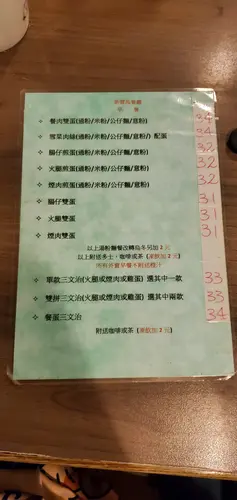 早餐
餐肉雙蛋(通粉/米粉/公仔麵/意粉) 34
雪菜肉絲(通粉/米粉/公仔麵/意粉/) 配蛋 34
腸仔煎蛋(通粉/米粉/公仔麵/意粉) 32
火腿煎蛋(通粉/米粉/公仔麵/意粉) 32
煙肉煎蛋(通粉/米粉/公仔麵/意粉) 32
腸仔雙蛋 31
火腿雙蛋 31
煙肉雙蛋 31
以上湯粉麵餐改轉烏冬另加 2 元
以上附送多士，咖啡或茶 (凍飲加 2 元)
所有外賣早餐不附送
單款三文治(火腿或煙肉或雞蛋) 選其中一款 33
雙拼三文治(火腿或煙肉或雞蛋) 選其中兩款 33
餐蛋三文治 34
附送咖啡或茶 (凍飲加 2 元)